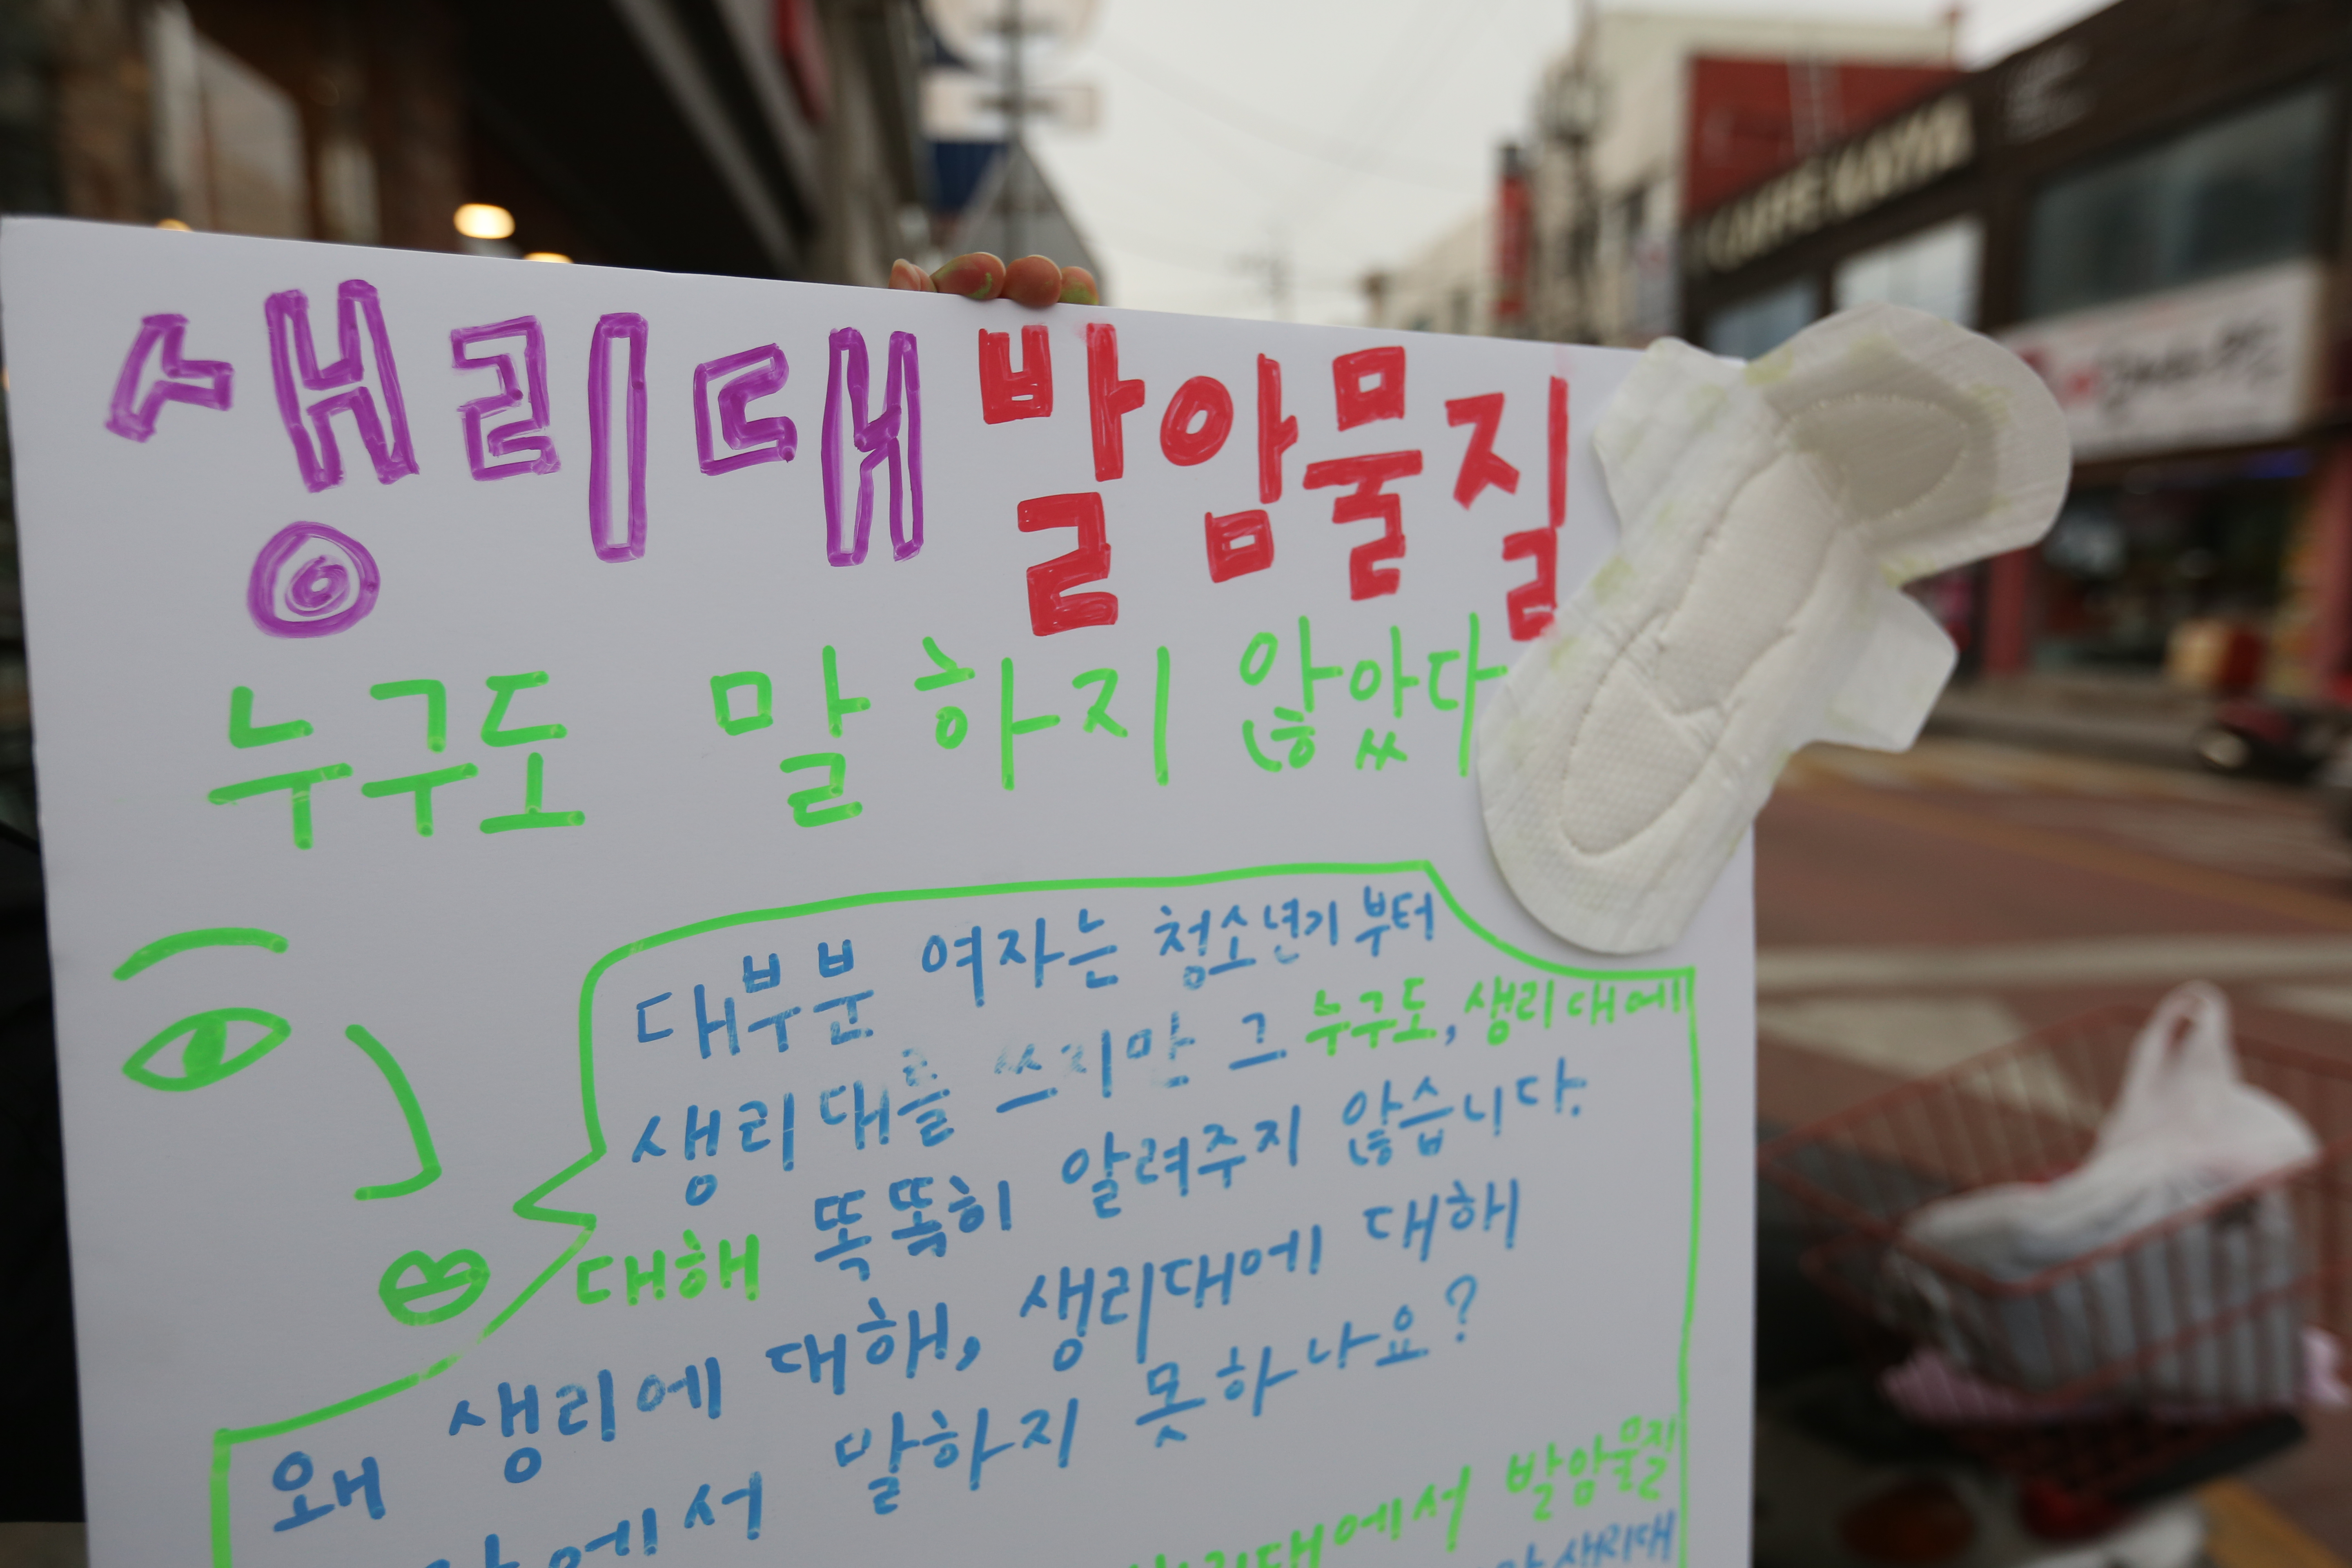 생리대 발암물질
누구도 말하지 않았다
대부분 여자는 청소년기부터
생리대를 쓰지만 그 누구도, 생리대에
대해 똑똑히 알려주지 않습니다.
왜 생리에 대해, 생리대에 대해
에서 말하지 못하나요?
생리대에서 발암물질
생리대
CAFFE